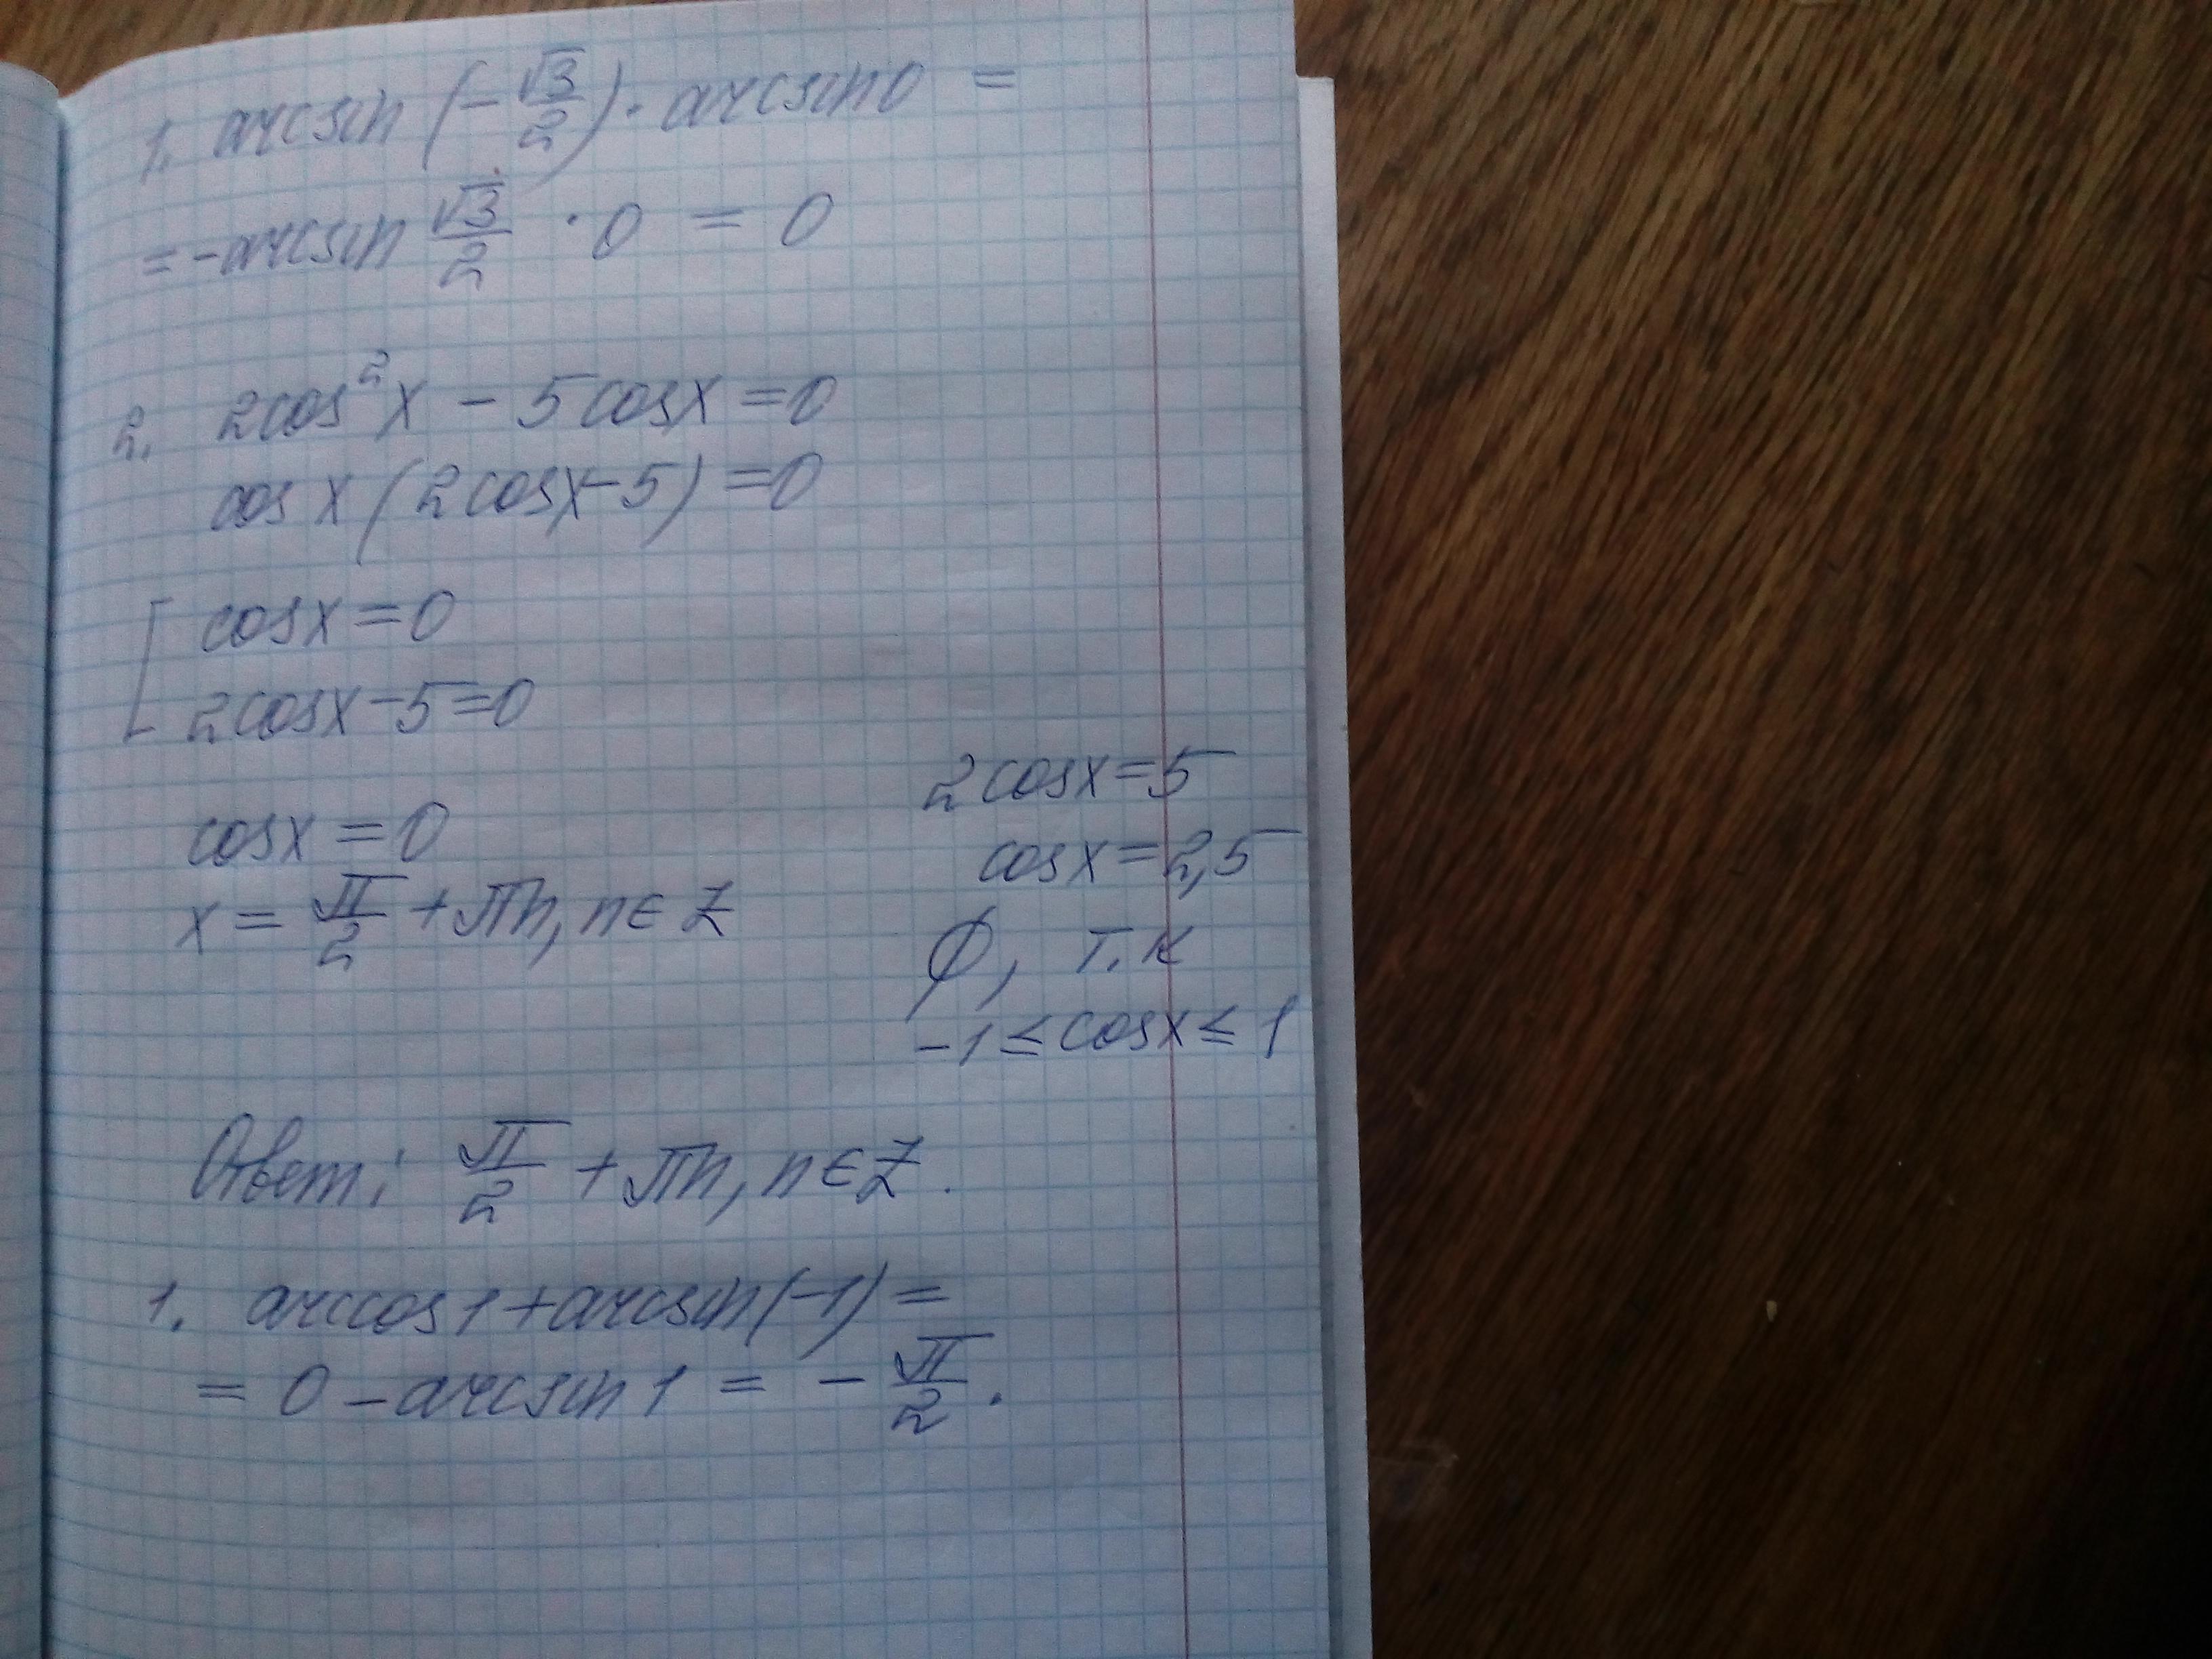 1. arcsin (-√3/2) · arcsin 0 =
= -arcsin √3/2 · 0 = 0
2. 2cos²x - 5cosx = 0
cos x (2cosx-5) = 0
[ cosx = 0
2cosx-5=0
cosx = 0
x = π/2 + πn, n ∈ Z
2cosx=5
cosx=2,5
∅, т.к
-1 ≤ cosx ≤ 1
Ответ: π/2 + πn, n ∈ Z.
1. arccos1 + arcsin(-1) =
= 0 - arcsin 1 = - π/2.